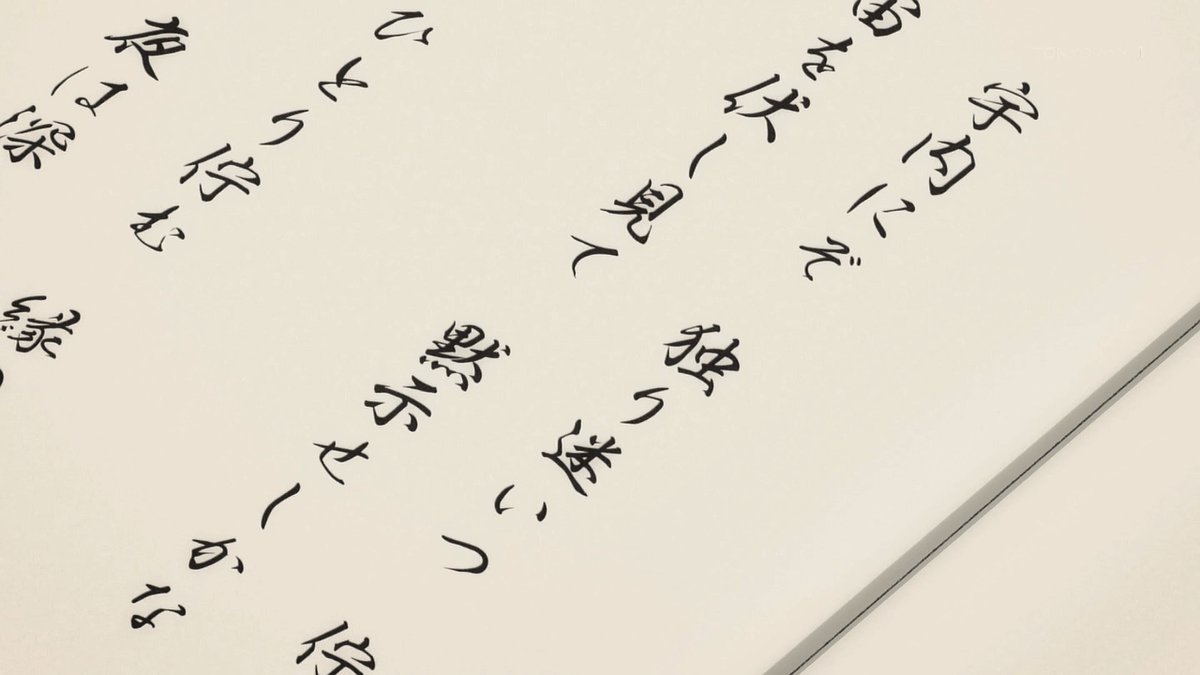 宇内にぞ 独り迷いつ 佇
宙を伏し見て 黙示せしかな
ひとり佇む 縁
夜は深